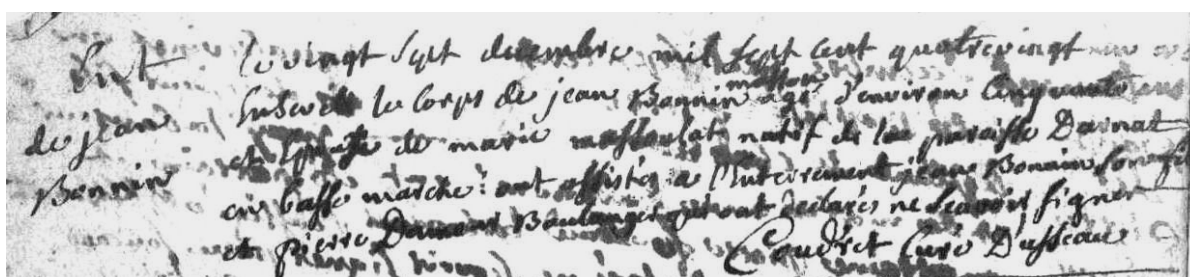 Ent
de jean
Bonnin
le vingt sept decembre mil sept cent quatrevingt un a
susdit le corps de jean Bonnin masson agé d'environ cinquante ans
et epoux de marie natif de la paroisse Darnat
en basse marche : ont assistés a l'enterrement jean Bonnin son fils
et pierre Boulanger qui ont declarés ne scavoir signer
Coudret Curé D'usseau